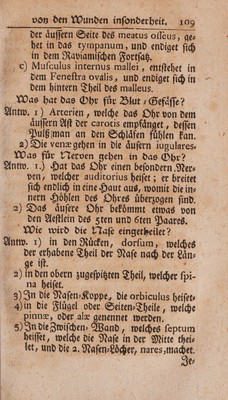 von den Wunden insonderheit. 109
der äussern Seite des meatus osseus, ge-
het in das tympanum, und endiget sich
in dem Ravianischen Fortsatz.
c) Musculus internus mallei, entstehet in
dem Fenestra ovalis, und endiget sich in
dem hintern Theil des malleus.
Was hat das Ohr für Blut-Gefässe?
Antw. 1) Arterien, welche das Ohr von dem
äussern Ast der carotis empfänget, dessen
Pulsz man an den Schläfen fühlen kan.
2) Die venæ gehen in die äusern iugulares.
Was für Nerven gehen in das Ohr?
Antw. 1) Hat das Ohr einen besondern Ner-
ven, welcher auditorius heiset; er breitet
sich endlich in eine Haut aus, womit die in-
nern Höhlen des Ohres überzogen sind.
2) Das äusere Ohr bekommt etwas von
den Aestlein des 5ten und 6ten Paares.
Wie wird die Nase eingetheilet?
Antw. 1) in den Rücken, dorsum, welches
der erhabene Theil der Nase nach der Län-
ge ist.
2) in den obern zugespitzten Theil, welcher spi-
na heiset.
3) In die Nasen-Koppe, die orbiculus heiset.
4) in die Flügel oder Seiten-Theile, welche
pinnæ, oder alæ genennet werden.
5) In die Zwischen-Wand, welches septum
heisset, welche die Nase in der Mitte thei-
let, und die 2. Nasen-Löcher, nares, machet.
Je-